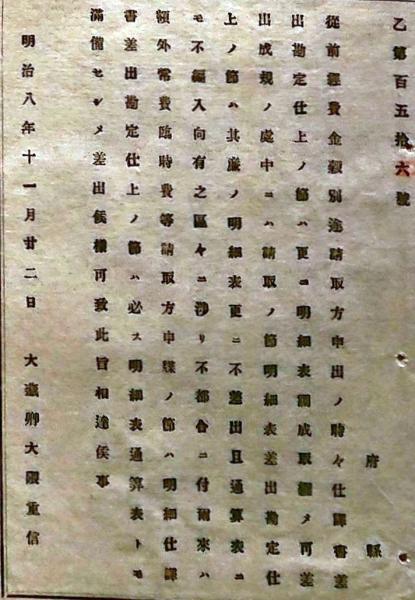 乙第百五拾六號
府縣
從前經費金穀別途請取方申出ノ時々仕譯書差
出勘定仕上ノ節ハ更ニ明細表調成取纏メ再差
出成規ノ處中ニハ請取ノ節明細表差出勘定仕
上ノ節ハ其厳ノ明細表更ニ不差出且通算表ニ
モ不編入向有之區々ニ渉リ不都合ニ付爾來ハ
額外常費臨時費等請取方申牒ノ節ハ明細仕譯
書差出勘定仕上ノ節ハ必ス明細表通算表トモ
滿備セシメ差出候樣可致此旨相達候事
明治八年十一月廿二日 大藏卿大隈重信